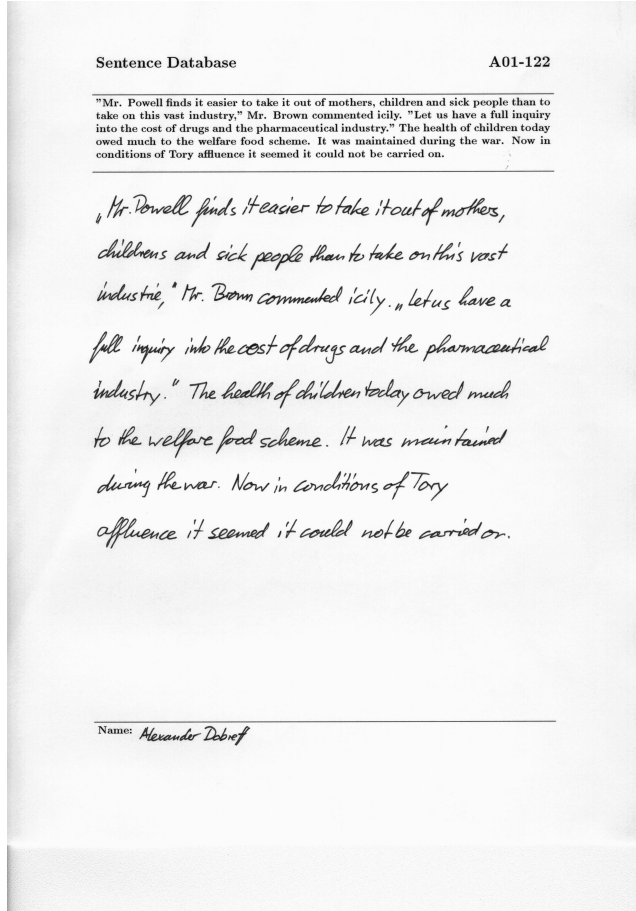 Sentence Database A01-122
"Mr. Powell finds it easier to take it out of mothers, children and sick people than to
take on this vast industry," Mr. Brown commented icily. "Let us have a full inquiry
into the cost of drugs and the pharmaceutical industry." The health of children today
owed much to the welfare food scheme. It was maintained during the war. Now in
conditions of Tory affluence it seemed it could not be carried on.
„Mr. Powell finds it easier to take it out of mothers,
childrens and sick people than to take on this vast
industrie," Mr. Brown commented icily. „Let us have a
full inquiry into the cost of drugs and the pharmaceutical
industry." The health of children today owed much
to the welfare food scheme. It was maintained
during the war. Now in conditions of Tory
affluence it seemed it could not be carried on.
Name: Alexander Dobieff